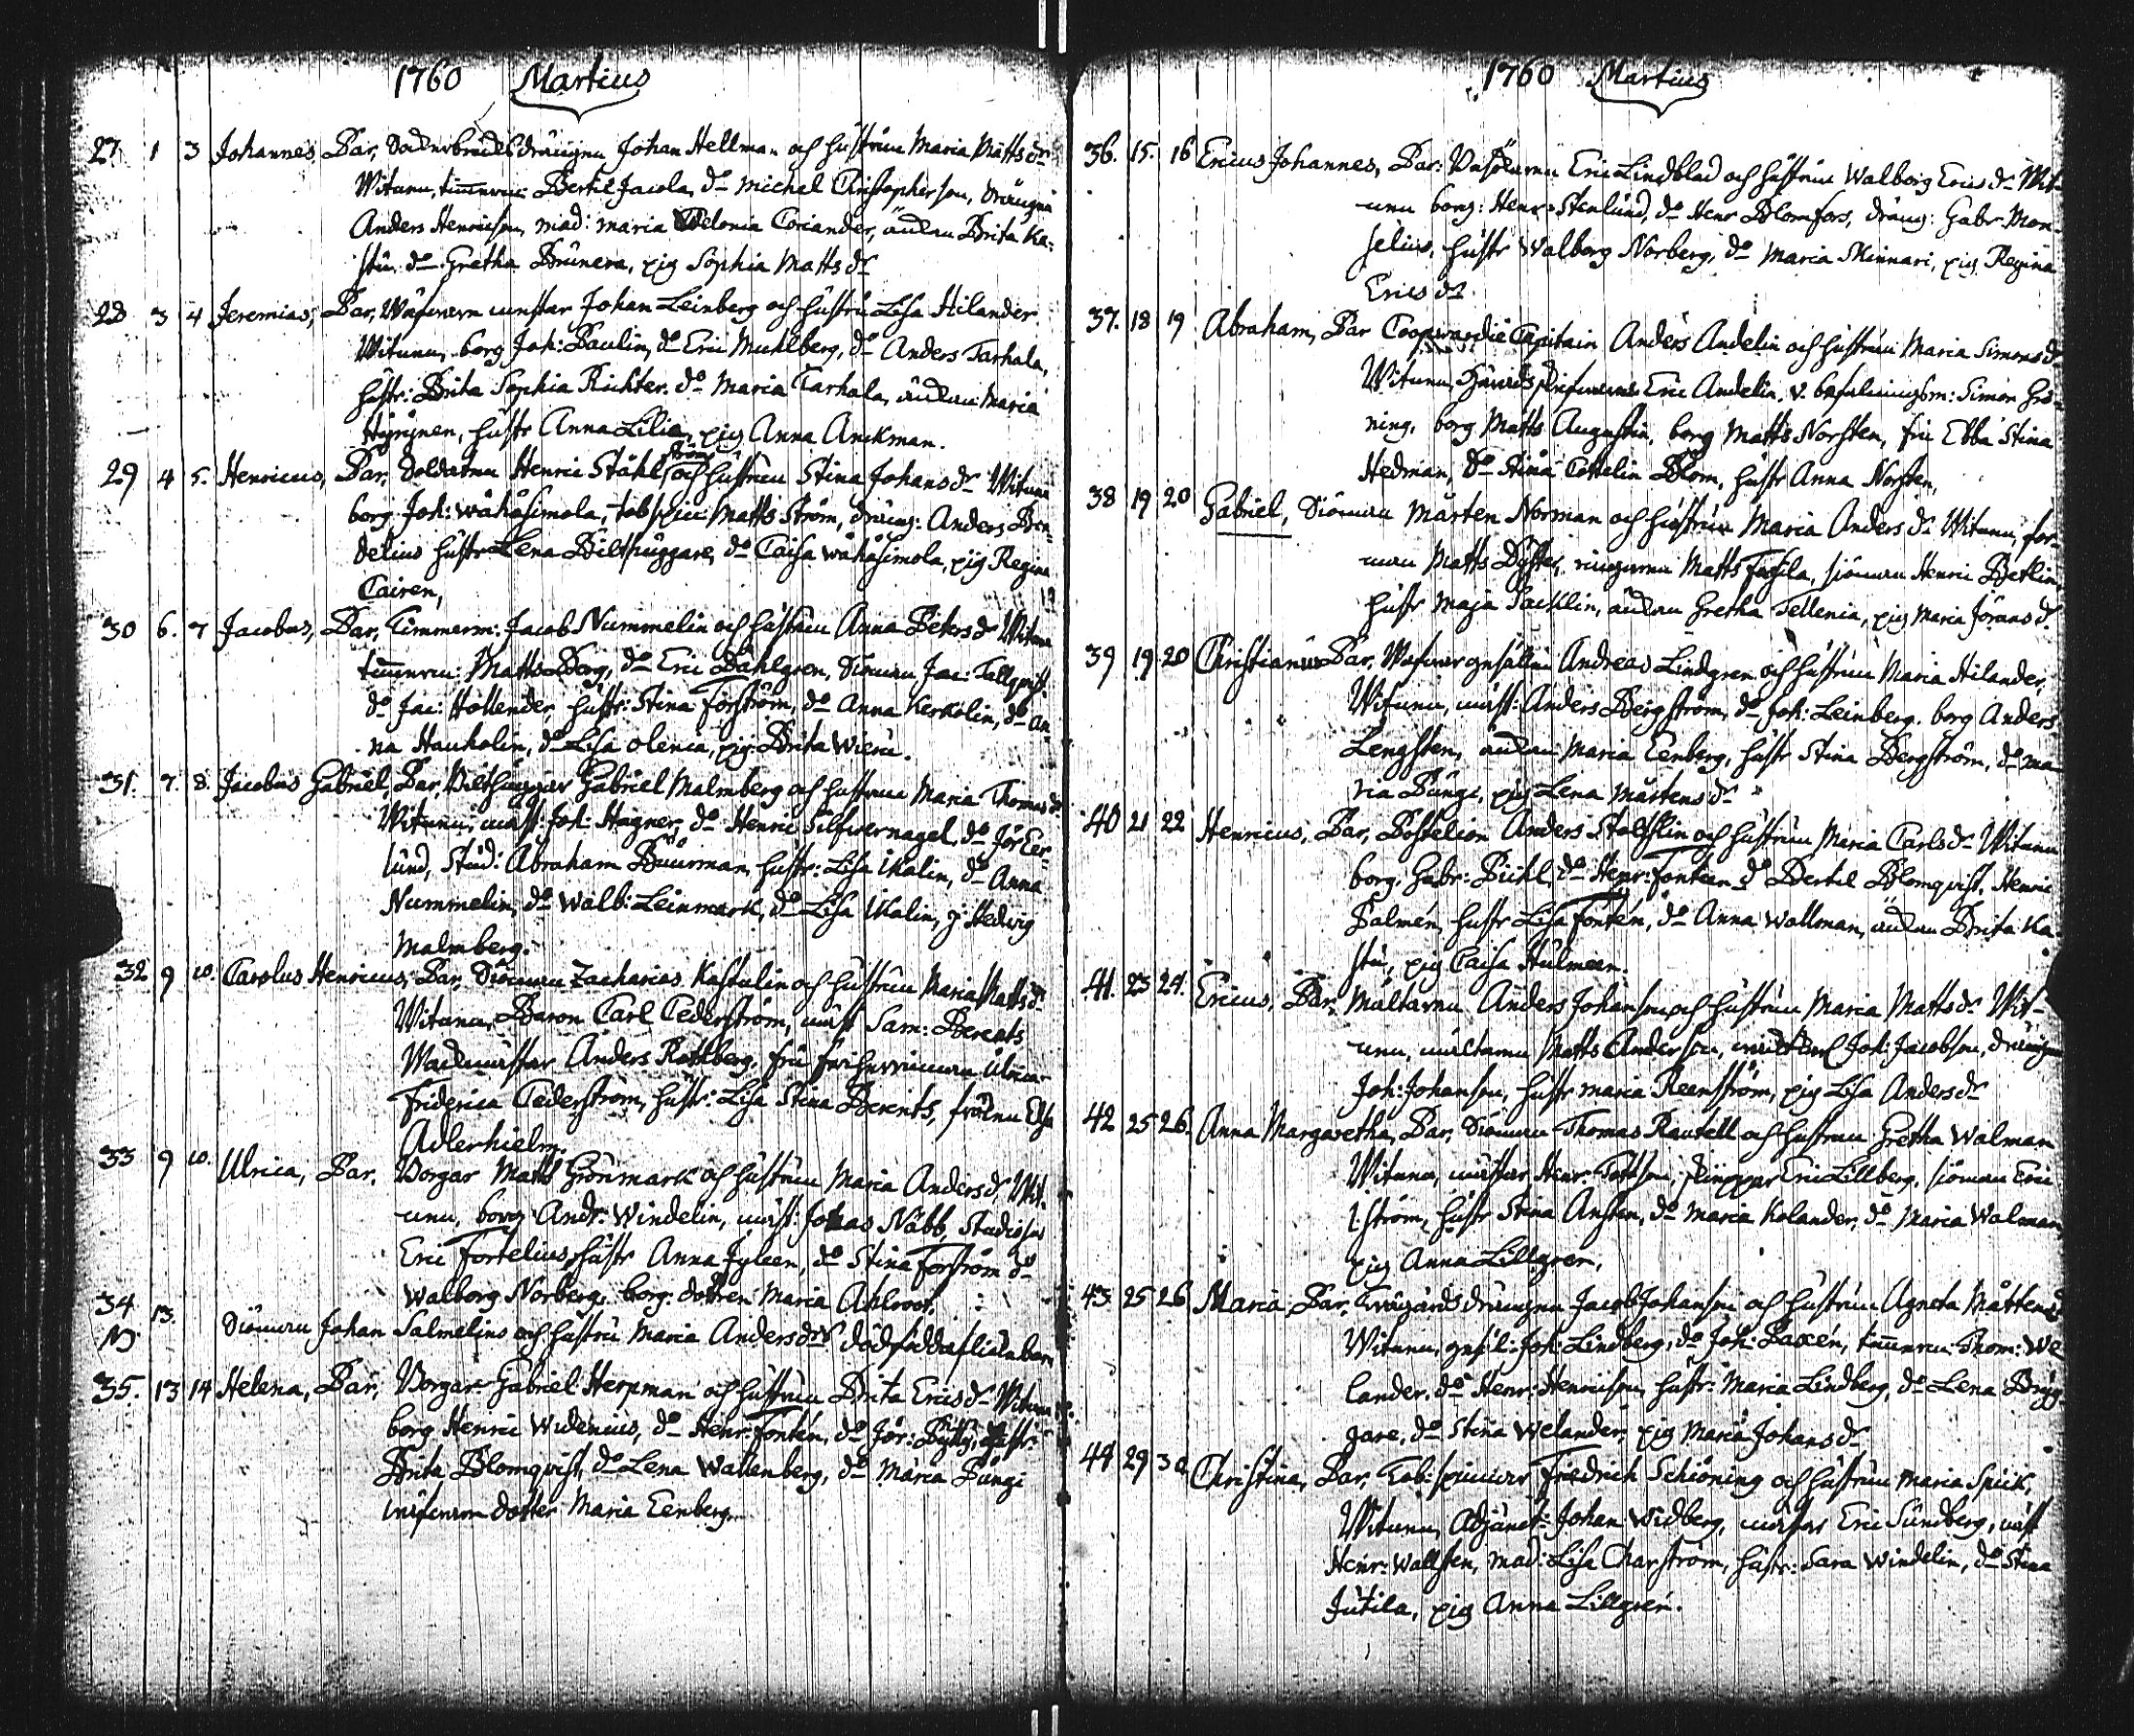 1760 Martius
27. 1 3 Johannes, Par, drängen Johan Hellman och hustrun Maria Matts dr
Witnen, timmerm: Bertil Jacola, do Michel Christopherson, drängen
Anders Henricson, mad: Maria Telonia Coriander, änkan Brita Ka-
stu do Gretha Brunera, pig Sophia Matts dr
28 3 4 Jeremias, Par, Mästar Johan Leinberg och hustru Lisa Hilander
Witnen, borg Joh: Paulin, do Eric Muhlberg, do Anders Tarhala,
hustr: Brita Sophia Richter. do Maria Tarhala, änkan Maria
Hyrynen, hustr Anna Lilia, pig Anna Anckman.
29 4 5. Henricus, Par, Soldaten Henric Ståhlström och hustrun Stina Johans dr Witnen
borg Joh: Wåhåsimola, Matts Ström, dräng: Anders Ben-
delius hustr Lena Bilthuggare, do Caisa Wåhåsimola, pig Regina
Cairen,
30 6. 7 Jacobus, Par, Timmerm: Jacob Nummelin och hustrun Anna Peters dr Witnen
timmerm: Matts Borg, do Eric Dahlgren, Siöman Jac: Tallqvist
do Jac: Hollender, hustr: Stina Forström, do Anna Kerkolin, do An-
na Haukolin, do Lisa Olenia, pig Brita Wieru.
31. 7. 8. Jacobus Gabriel, Par, Bilthuggar Gabriel Malmberg och hustrun Maria Thomas dr
Witnen, mäst: Joh: Hagner, do Henric Silfwernagel, do Jör Eer-
lund, Stud: Abraham Buurman, hustr: Lisa Ikalin, do Anna
Nummelin, do Walb: Leinmark, do Lisa Ikalin, j Hedvig
Malmberg.
32 9 10. Carolus Henricus, Par, Siöman Zacharias Kastulin och hustrun Maria Matts dr
Witnen, Baron Carl Cederström, mäst Sam: Berents
Wachmästar Anders Rothberg, fru friherrinnan Ulrica
Friderica Cederström, hustr: Lisa Stina Berents, frökn Elsa
Adlerhielm.
33 9 10. Ulrica, Par. Borgar Matts Grönmark och hustrun Maria Anders dr Wit-
nen, borg Andr: Windelin, mäst: Johas Näbb, Studiosus
Eric Fortelius, hustr Anna Jyleen, do Stina Forström do
Walborg Norberg, borg. dottren Maria Ahlroos.
34 13. Siöman Johan Salmelins och hustru Maria Anders drs dödfödda flickebarn
N
35. 13 14 Helena, Par, Borgar Gabriel Herpman och hustrun Brita Erics dr Witnen
borg Henric Widenius, do Henr: Fontén, do Jör: Pytty, hustr:
Brita Blomqvist, do Lena Wallenberg, do Maria Pungi
dotter Maria Eenberg.
1760 Martius
36. 15. 16 Ericus Johannes, Par: Eric Lindblad och hustrun Walborg Erics dr Wit-
nen borg: Henr: Stenlund, do Henr Blomfors, dräng: Gabr Mon-
selius, hustr Walborg Norberg, do Maria Skinnari, pig Regina
Erics dr
37. 18 19 Abraham, Par Coopvardie Capitain Anders Andelin och hustrun Maria Simons dr
Witnen, Eric Andelin, Simon Grö-
ning, borg Matts Augustin, borg Matts Norsten, fru Ebba Stina
Hedman, do Stina Cottelin Blom, hustr Anna Norsten,
38 19 20 Gabriel, Siöman Mårten Norman och hustrun Maria Anders dr Witnen, for-
man Matts Dyster, Matts Fasila, siöman Henric Betlin,
hustr Maja Sacklin, änkan Gretha Tellenia, pig Maria Jörans dr
39 19. 20 Christianus Par, gesällen Andreas Lindgren och hustrun Maria Hilander,
Witnen, mäst: Anders Bergström, do Joh: Leinberg. borg Anders
Lengsten, änkan Maria Eenberg, hustr Stina Bergström, do Ma-
ria Pungi, pig Lena Mårtens dr
40 21 22 Henricus, Par, Postelion Anders Stolfslin och hustrun Maria Carls dr Witnen
borg. Gabr: Pihl, do Henr: Fonteen do Bertil Blomqvist, Henric
Palmén, hustr Lisa Fontén, do Anna Wallman, änkan Brita Ka-
stu, pig Caisa Hulmeen.
41. 23 24. Ericus, Par, Måltaren Anders Johanson och hustrun Maria Matts dr Wit-
nen, måltaren Matts Anderson, Joh: Jacobson, drängen
Joh: Johanson, hustr Maria Reenström, pig Lisa Anders dr
42 25 26. Anna Margaretha, Par, Siöman Thomas Rautell och hustrun Gretha Walman
Witnen, mästar Henr: Tottson, Skieppar Eric Lillberg, siöman Eric
Iström, hustr Stina Ansten, do Maria Kolander, do Maria Walman
pig Anna Lillgren.
43 25 26 Maria, Par, drängen Jacob Johanson och hustrun Agneta Mårtens dr
Witnen, gesäl: Joh: Lindberg, do Joh: Paxén, timmerm: Thom: We
lander. do Henr: Henricson, hustr: Maria Lindberg, do Lena Bryg-
gare, do Stina Welander, pig Maria Johans dr
44 29 30 Christina, Par, Tob: spinnar Friedrich Schiöning och hustrun Maria Spiik,
Witnen, Adjunct: Johan Widberg, mästar Eric Sundberg, mäst
Henr: Wallsten, mad: Lisa Charström, hustr: Sara Windelin, do Stina
Jutila, pig Anna Lillgrén.